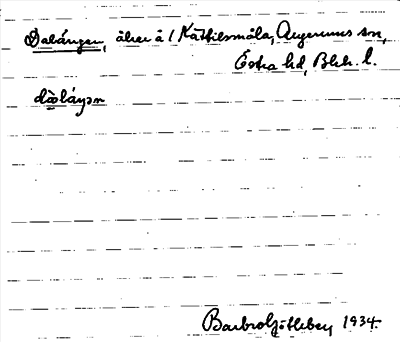 Dalången, åker å 1 Kättilsmåla, Augerums sn,
Östra hd, Blek. l.
dàláŋən
Barbro Götheberg 1934.